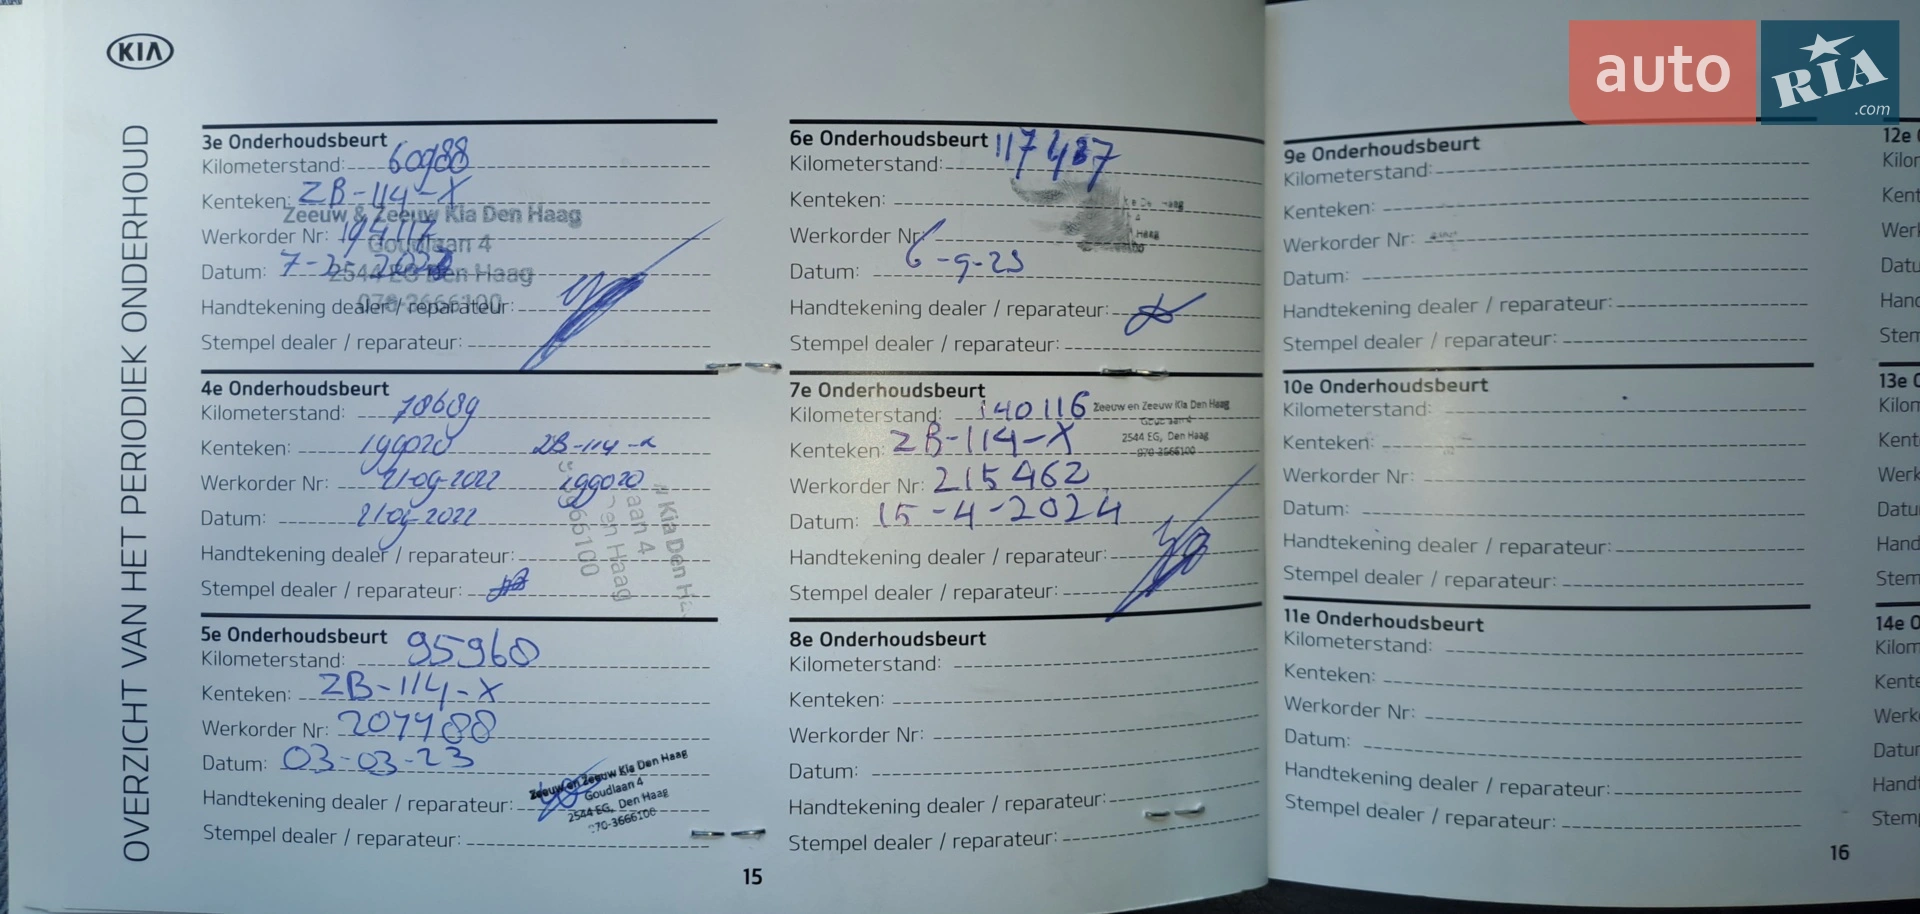 KIA
OVERZICHT VAN HET PERIODIEK ONDERHOUD
3e Onderhoudsbeurt
Kilometerstand: 60988
Kenteken: ZB-114-X
Zeeuw & Zeeuw Kia Den Haag
Werkorder Nr: 194117
Goudlaan 4
Datum: 7-
2544 EG Den Haag
Handtekening dealer / reparateur:
070-3666100
Stempel dealer / reparateur:
4e Onderhoudsbeurt
Kilometerstand: 78689
Kenteken: 199020 ZB-114-X
Werkorder Nr: 21-09-2022 199020
Datum: 21-09-2022
Handtekening dealer / reparateur:
Stempel dealer / reparateur:
Kia Den Ha
aan 4
Den Haag
3666100
5e Onderhoudsbeurt
Kilometerstand: 95960
Kenteken: ZB-114-X
Werkorder Nr: 207788
Datum: 03-03-23
Handtekening dealer / reparateur:
Zeeuw en Zeeuw Kia Den Haag
Goudlaan 4
2544 EG, Den Haag
070-3666100
Stempel dealer / reparateur:
15
6e Onderhoudsbeurt
Kilometerstand: 117437
Kenteken:
Werkorder Nr:
Datum: 6-9-23
Handtekening dealer / reparateur:
Stempel dealer / reparateur:
7e Onderhoudsbeurt
Kilometerstand: 140116
Zeeuw en Zeeuw Kia Den Haag
Goudlaan 4
2544 EG, Den Haag
070-3666100
Kenteken: ZB-114-X
Werkorder Nr: 215462
Datum: 15-4-2024
Handtekening dealer / reparateur:
Stempel dealer / reparateur:
8e Onderhoudsbeurt
Kilometerstand:
Kenteken:
Werkorder Nr:
Datum:
Handtekening dealer / reparateur:
Stempel dealer / reparateur:
9e Onderhoudsbeurt
Kilometerstand:
Kenteken:
Werkorder Nr:
Datum:
Handtekening dealer / reparateur:
Stempel dealer / reparateur:
10e Onderhoudsbeurt
Kilometerstand:
Kenteken:
Werkorder Nr:
Datum:
Handtekening dealer / reparateur:
Stempel dealer / reparateur:
11e Onderhoudsbeurt
Kilometerstand:
Kenteken:
Werkorder Nr:
Datum:
Handtekening dealer / reparateur:
Stempel dealer / reparateur:
16
12e
Kilon
Kent
Werk
Datu
Hand
Stem
13e O
Kilom
Kent
Werk
Datu
Hand
Stem
14e O
Kilom
Kente
Werk
Datur
Handt
Stemp
auto RIA
.com